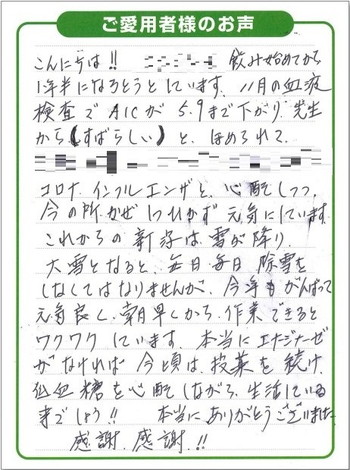 ご愛用者様のお声
こんにちは!! 飲み始めてから
1年半になろうとしています。11月の血液
検査でA1Cが5.9まで下がり、先生
から(すばらしい)と、ほめられて、
コロナ、インフルエンザと、心配しつつ、
今の所かぜ1つひかず元気にしています。
これからの新⬚は雪が降り、
大雪となると、毎日毎日除雪を
しなくてはなりませんが、今年もがんばって
元気良く、朝早くから、作業できると
ワクワクしています。本当にエナジナーゼ
がなければ今頃は、投薬を続け、
低血糖を心配しながら、生活している
事でしょう!! 本当にありがとうございました。
感謝、感謝、!!